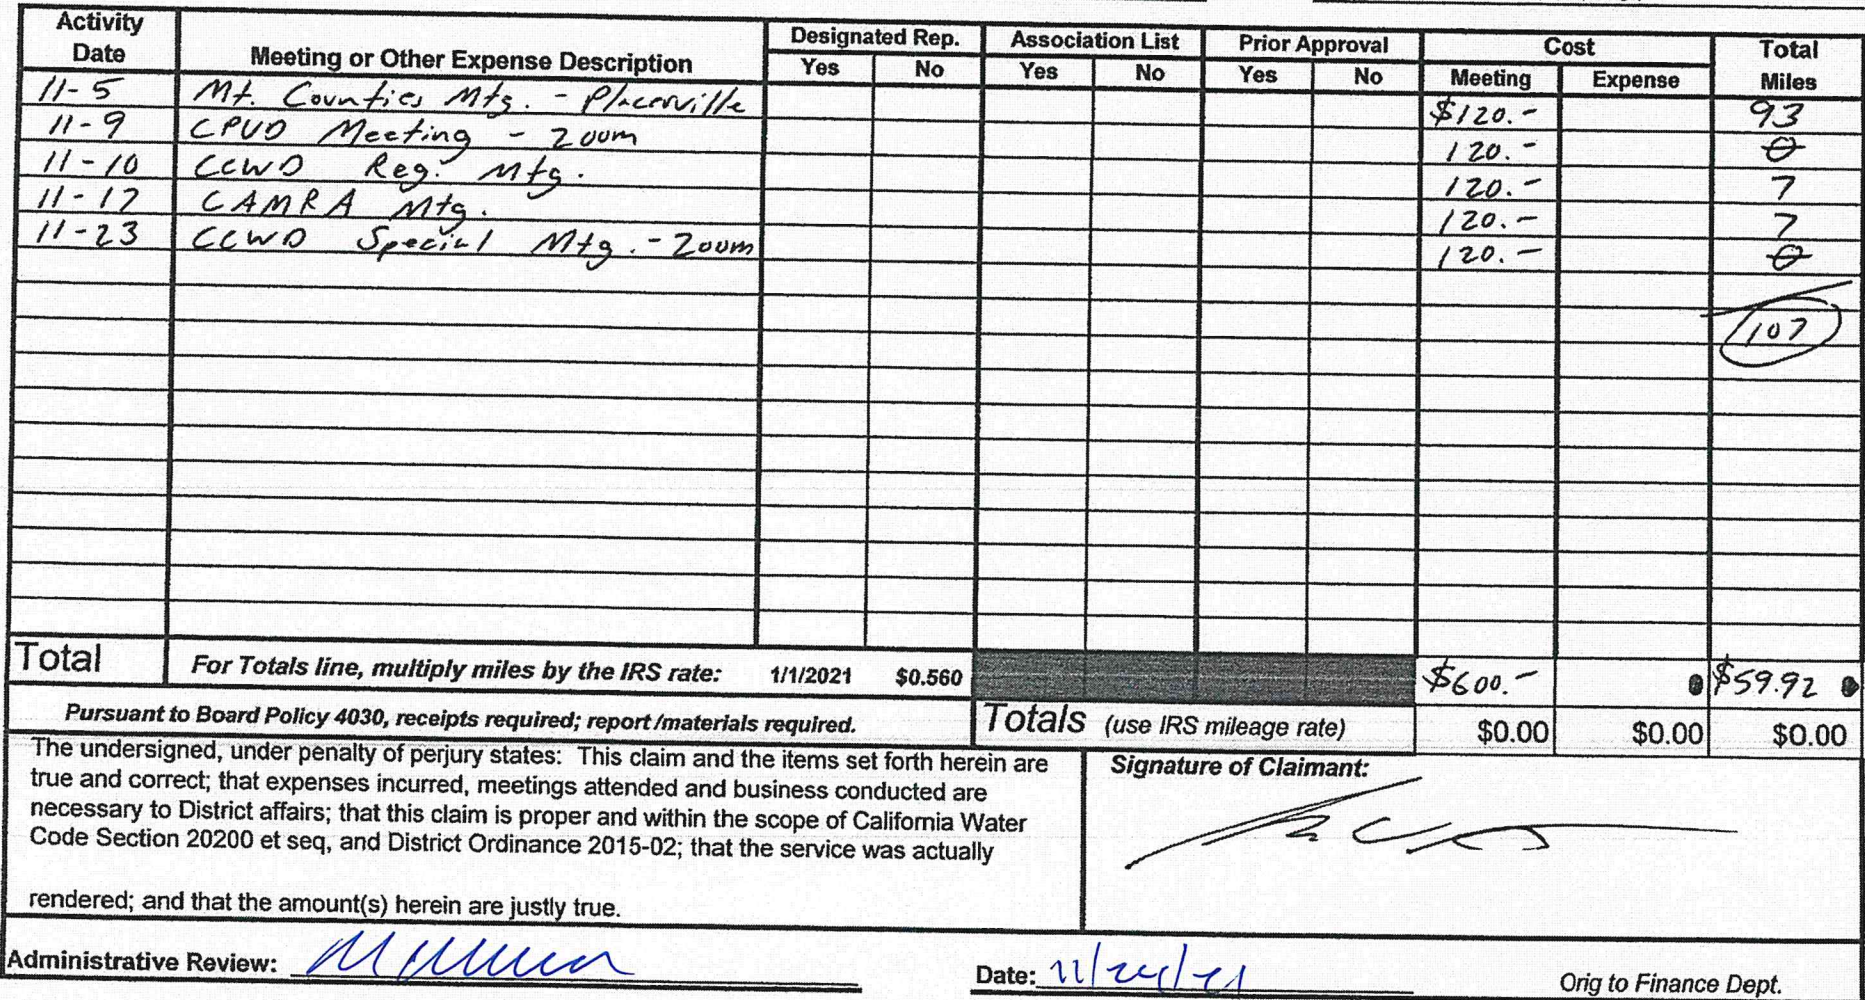 Activity Date Meeting or Other Expense Description Designated Rep. Association List Prior Approval Cost Total Miles
Yes No Yes No Yes No Meeting Expense
11-5 Mt. Counties Mtg. - Placerville $120.- 93
11-9 CPUD Meeting - Zoom 120.- 0
11-10 CCWD Reg. Mtg. 120.- 7
11-17 CAMRA Mtg. 120.- 7
11-23 CCWD Special Mtg. - Zoom 120.- 0
107
Total For Totals line, multiply miles by the IRS rate: 1/1/2021 $0.560 $600.- $59.92
Pursuant to Board Policy 4030, receipts required; report/materials required. Totals (use IRS mileage rate) $0.00 $0.00 $0.00
The undersigned, under penalty of perjury states: This claim and the items set forth herein are
true and correct; that expenses incurred, meetings attended and business conducted are
necessary to District affairs; that this claim is proper and within the scope of California Water
Code Section 20200 et seq, and District Ordinance 2015-02; that the service was actually
rendered; and that the amount(s) herein are justly true.
Signature of Claimant:
Administrative Review:
Date: 11/24/21
Orig to Finance Dept.